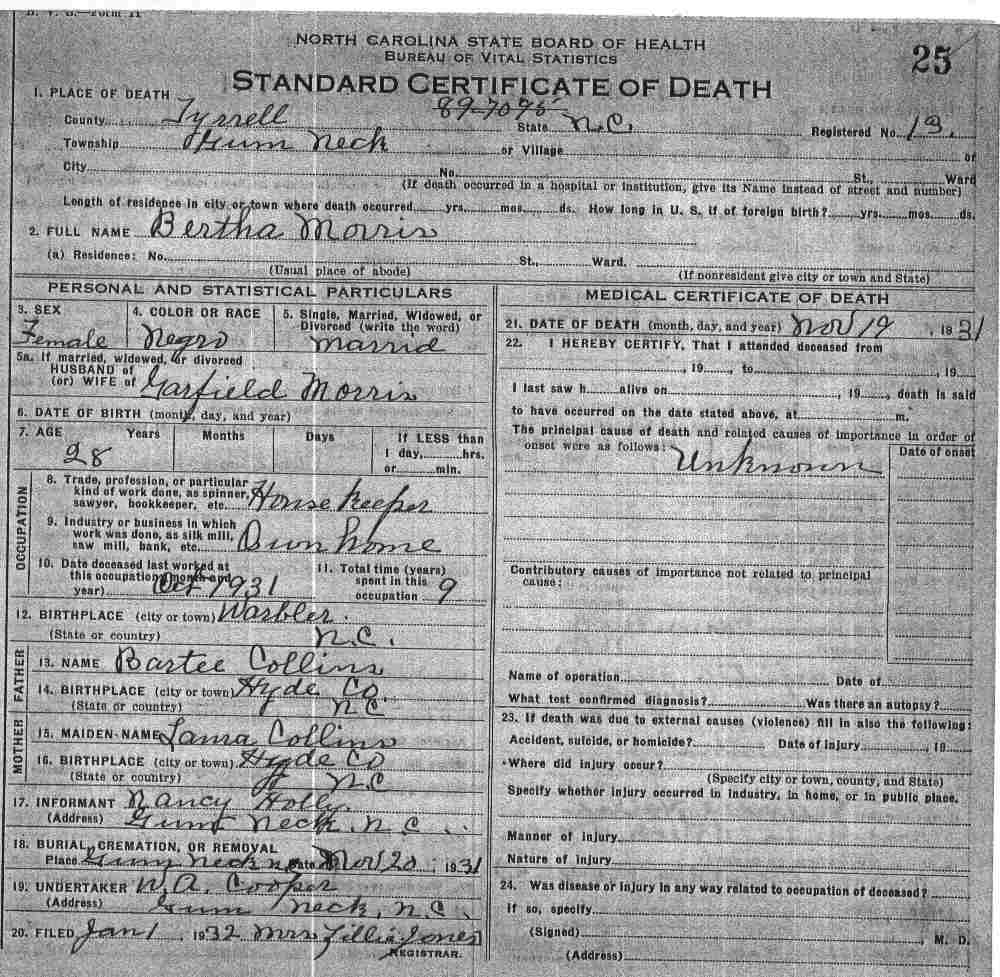 B. V. S.—Form 11
NORTH CAROLINA STATE BOARD OF HEALTH
BUREAU OF VITAL STATISTICS
25
STANDARD CERTIFICATE OF DEATH
89-7095
1. PLACE OF DEATH
County Tyrrell State N.C. Registered No. 13.
Township Gum Neck or Village or
City No. St., Ward
(If death occurred in a hospital or institution, give its Name instead of street and number)
Length of residence in city or town where death occurred yrs. mos. ds. How long in U. S. if of foreign birth? yrs. mos. ds.
2. FULL NAME Bertha Morris
(a) Residence: No. St., Ward.
(Usual place of abode) (If nonresident give city or town and State)
PERSONAL AND STATISTICAL PARTICULARS
3. SEX 4. COLOR OR RACE 5. Single, Married, Widowed, or
Divorced (write the word)
Female Negro Marrid
5a. If married, widowed, or divorced
HUSBAND of
(or) WIFE of Garfield Morris
6. DATE OF BIRTH (month, day, and year)
7. AGE Years Months Days If LESS than
1 day, hrs.
28 or min.
OCCUPATION
8. Trade, profession, or particular
kind of work done, as spinner, House Keeper
sawyer, bookkeeper, etc.
9. Industry or business in which
work was done, as silk mill, Own home
saw mill, bank, etc.
10. Date deceased last worked at
this occupation (month and
year) Oct 1931
11. Total time (years)
spent in this
occupation 9
12. BIRTHPLACE (city or town) Warbler.
(State or country) N.C.
FATHER
13. NAME Bartee Collins
14. BIRTHPLACE (city or town) Hyde Co
(State or country) N C
MOTHER
15. MAIDEN NAME Laura Collins
16. BIRTHPLACE (city or town) Hyde Co
(State or country) N.C
17. INFORMANT Nancy Holly.
(Address) Gum Neck, N C
18. BURIAL, CREMATION, OR REMOVAL
Place Gum Neck N C Date Nov 20, 1931
19. UNDERTAKER W. A. Cooper
(Address) Gum Neck, N.C.
20. FILED Jan 1, 1932 Mrs Zillie Jones
REGISTRAR.
MEDICAL CERTIFICATE OF DEATH
21. DATE OF DEATH (month, day, and year) Nov 19, 1931
22. I HEREBY CERTIFY, That I attended deceased from
, 19 , to , 19
I last saw h alive on , 19 , death is said
to have occurred on the date stated above, at m.
The principal cause of death and related causes of importance in order of
onset were as follows: Date of onset
Unknown
Contributory causes of importance not related to principal
cause:
Name of operation Date of
What test confirmed diagnosis? Was there an autopsy?
23. If death was due to external causes (violence) fill in also the following:
Accident, suicide, or homicide? Date of injury , 19
Where did injury occur?
(Specify city or town, county, and State)
Specify whether injury occurred in industry, in home, or in public place.
Manner of injury
Nature of injury
24. Was disease or injury in any way related to occupation of deceased?
If so, specify
(Signed) , M. D.
(Address)